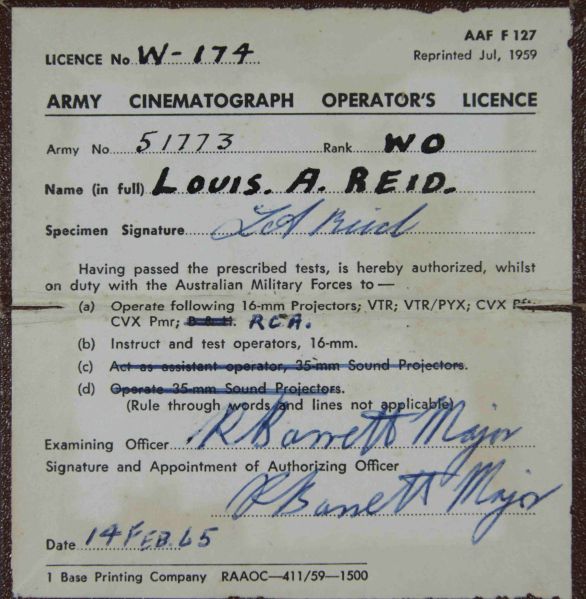 AAF F 127
LICENCE No W-174 Reprinted Jul, 1959
ARMY CINEMATOGRAPH OPERATOR'S LICENCE
Army No 51773 Rank WO
Name (in full) LOUIS. A. REID.
Specimen Signature LA Reid
Having passed the prescribed tests, is hereby authorized, whilst
on duty with the Australian Military Forces to—
(a) Operate following 16-mm Projectors; VTR; VTR/PYX; CVX Pft;
CVX Pmr; B & H. RCA.
(b) Instruct and test operators, 16-mm.
(c) Act as assistant operator, 35-mm Sound Projectors.
(d) Operate 35-mm Sound Projectors.
(Rule through words and lines not applicable)
Examining Officer R Barrett Major
Signature and Appointment of Authorizing Officer
R Barrett Major
Date 14 FEB. 65
1 Base Printing Company RAAOC—411/59—1500